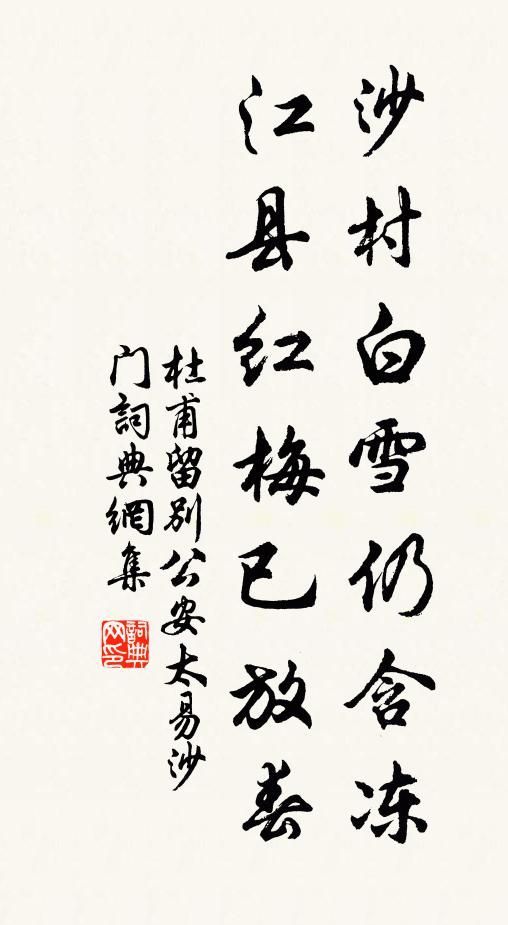 沙村白雪仍含冻
江县红梅已放春
杜甫留别公安太易沙
门詞典網集
詞典
网印